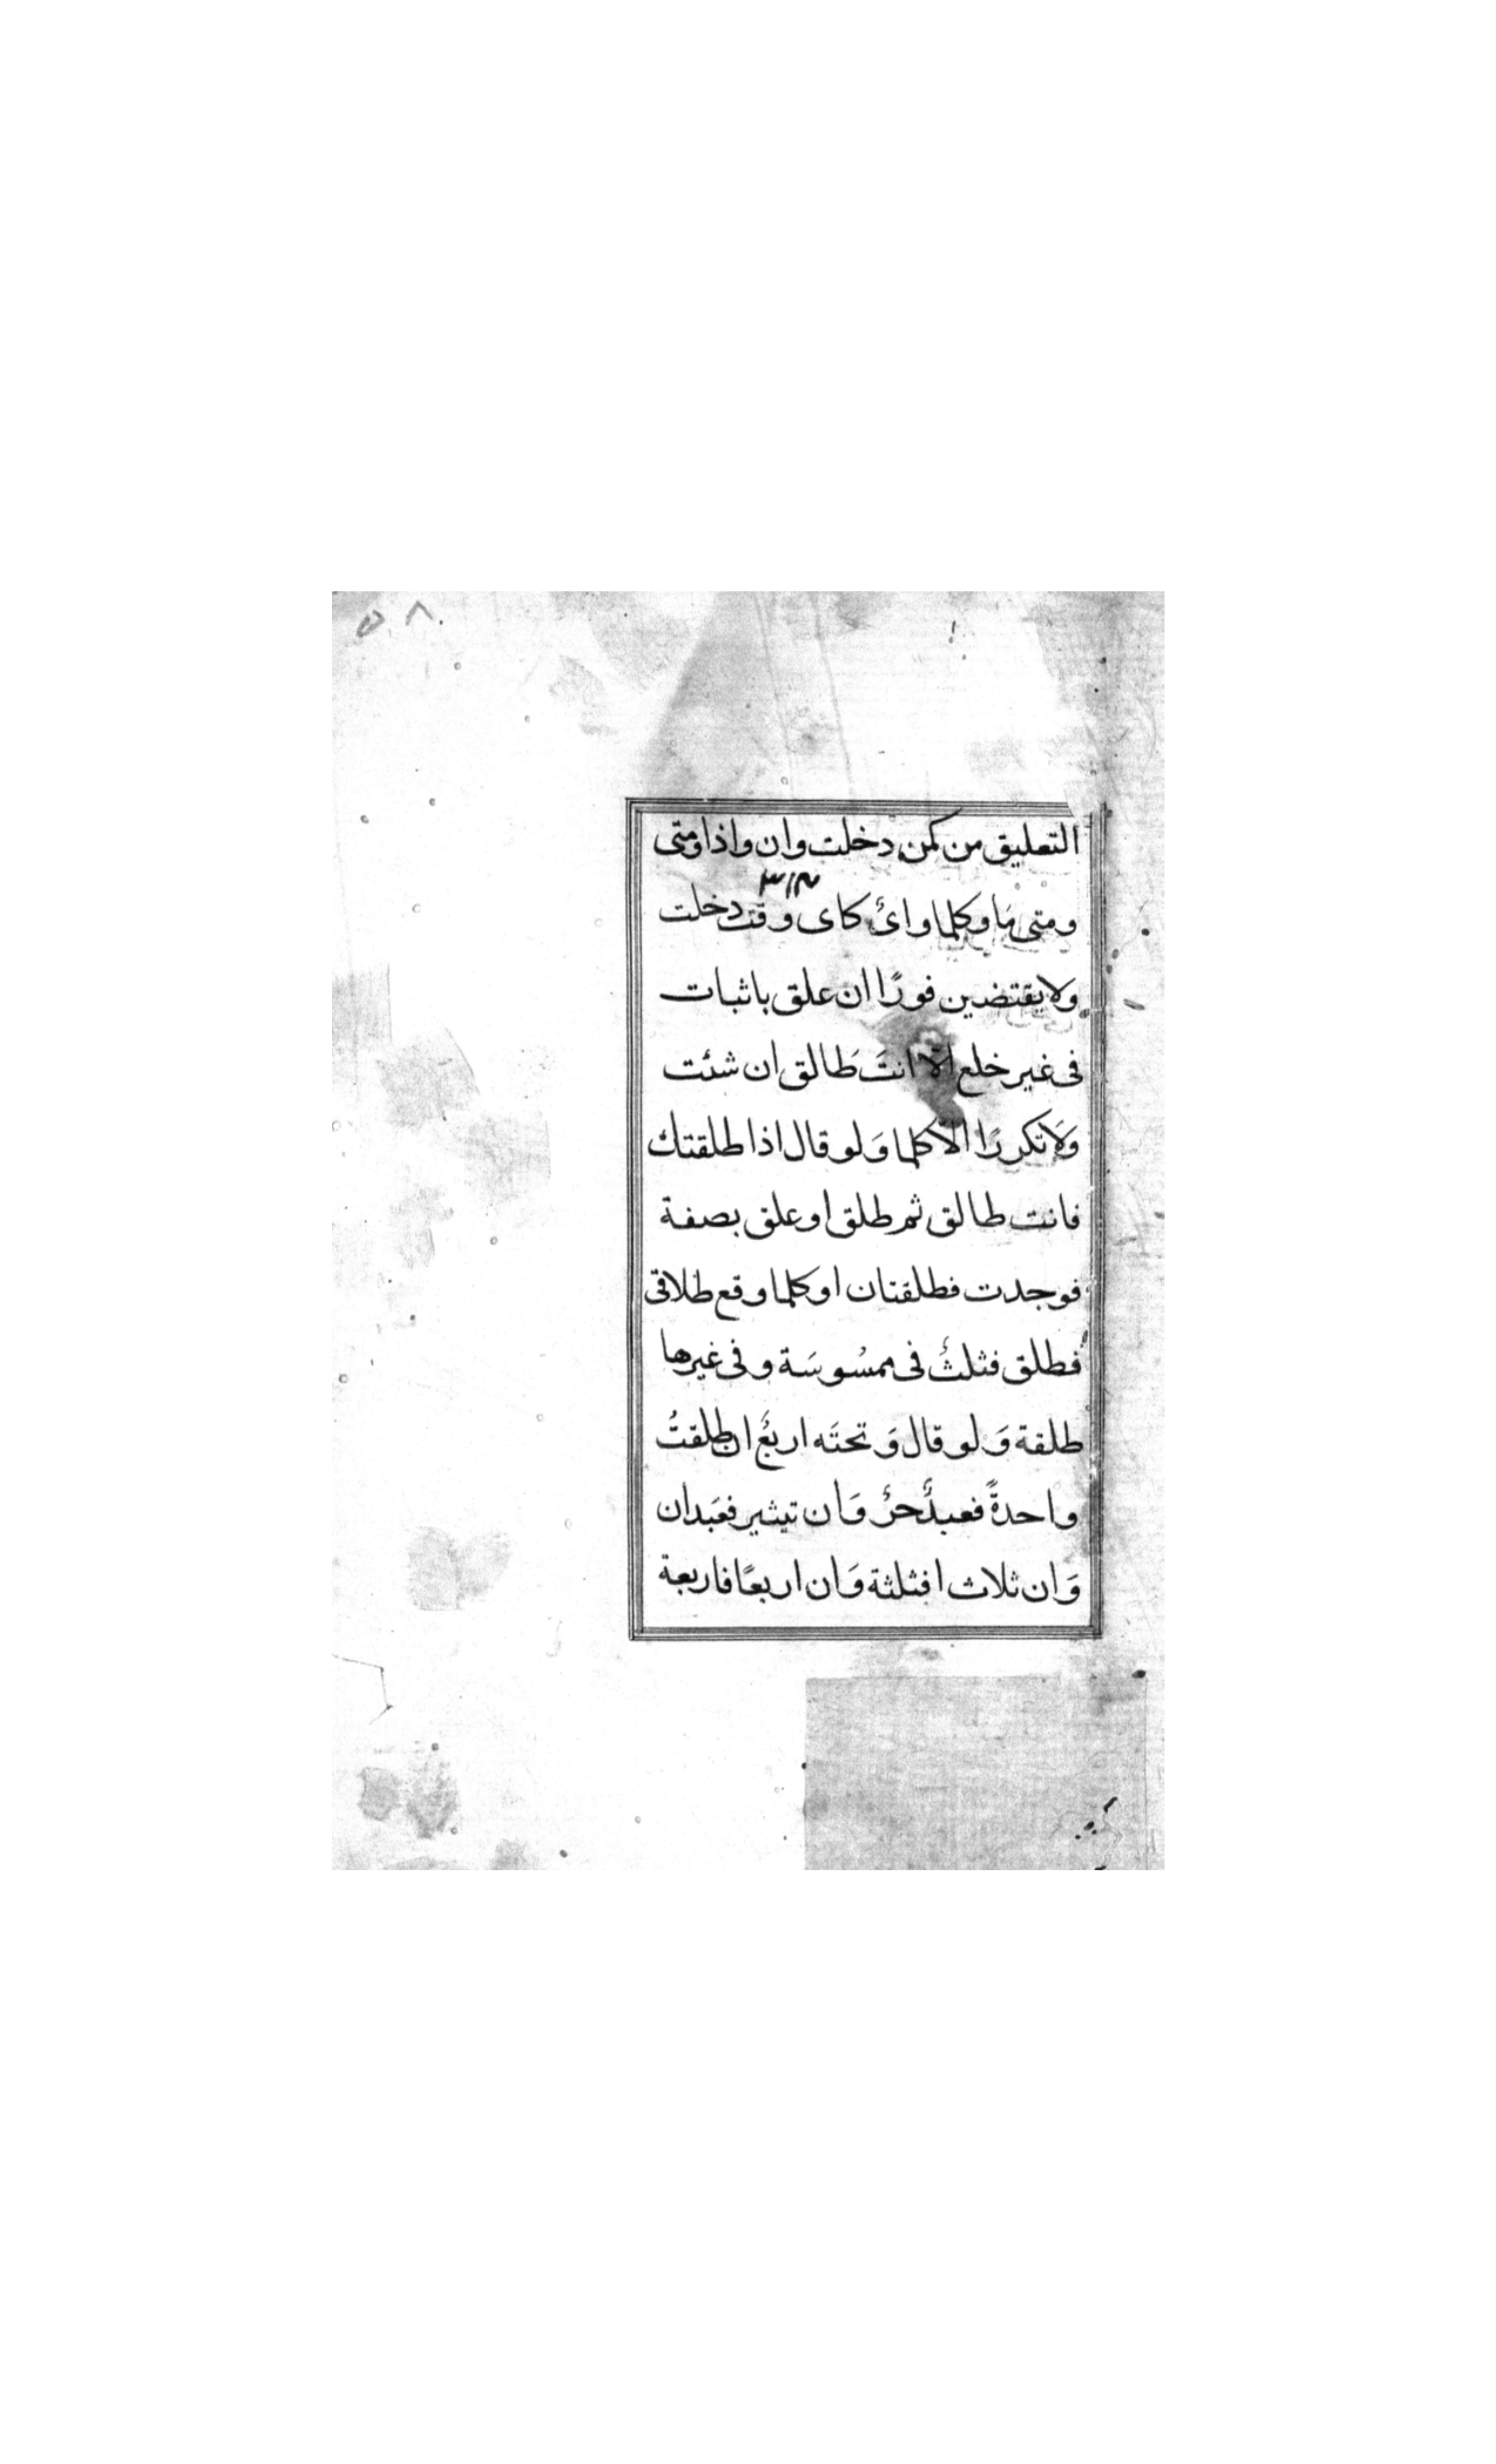 ٥٨
التعليق من كمن دخلت وان واذا ومتى
ومتى مَا وكلما واىُّ كاى وقت دخلت
ولا يقتضين فورًا ان علق باثبات
فى غير خلع الّا انتَ طَالق ان شئت
وَلَا تكررًا الّا كلما وَلو قال اذا طلقتك
فانت طالق ثم طلق او علق بصفة
فوجدت فطلقتان او كلما وقع طلاقى
فطلق فثلثُ فى ممسُوسَة وفى غيرها
طلقة وَلو قال وَتحتَه اربعُ ان طلقتُ
واحدةً فعبدٌ حرٌ وَان تيثير فعَبدان
وَان ثلاث افثلثة وَان اربعًا فاربعة